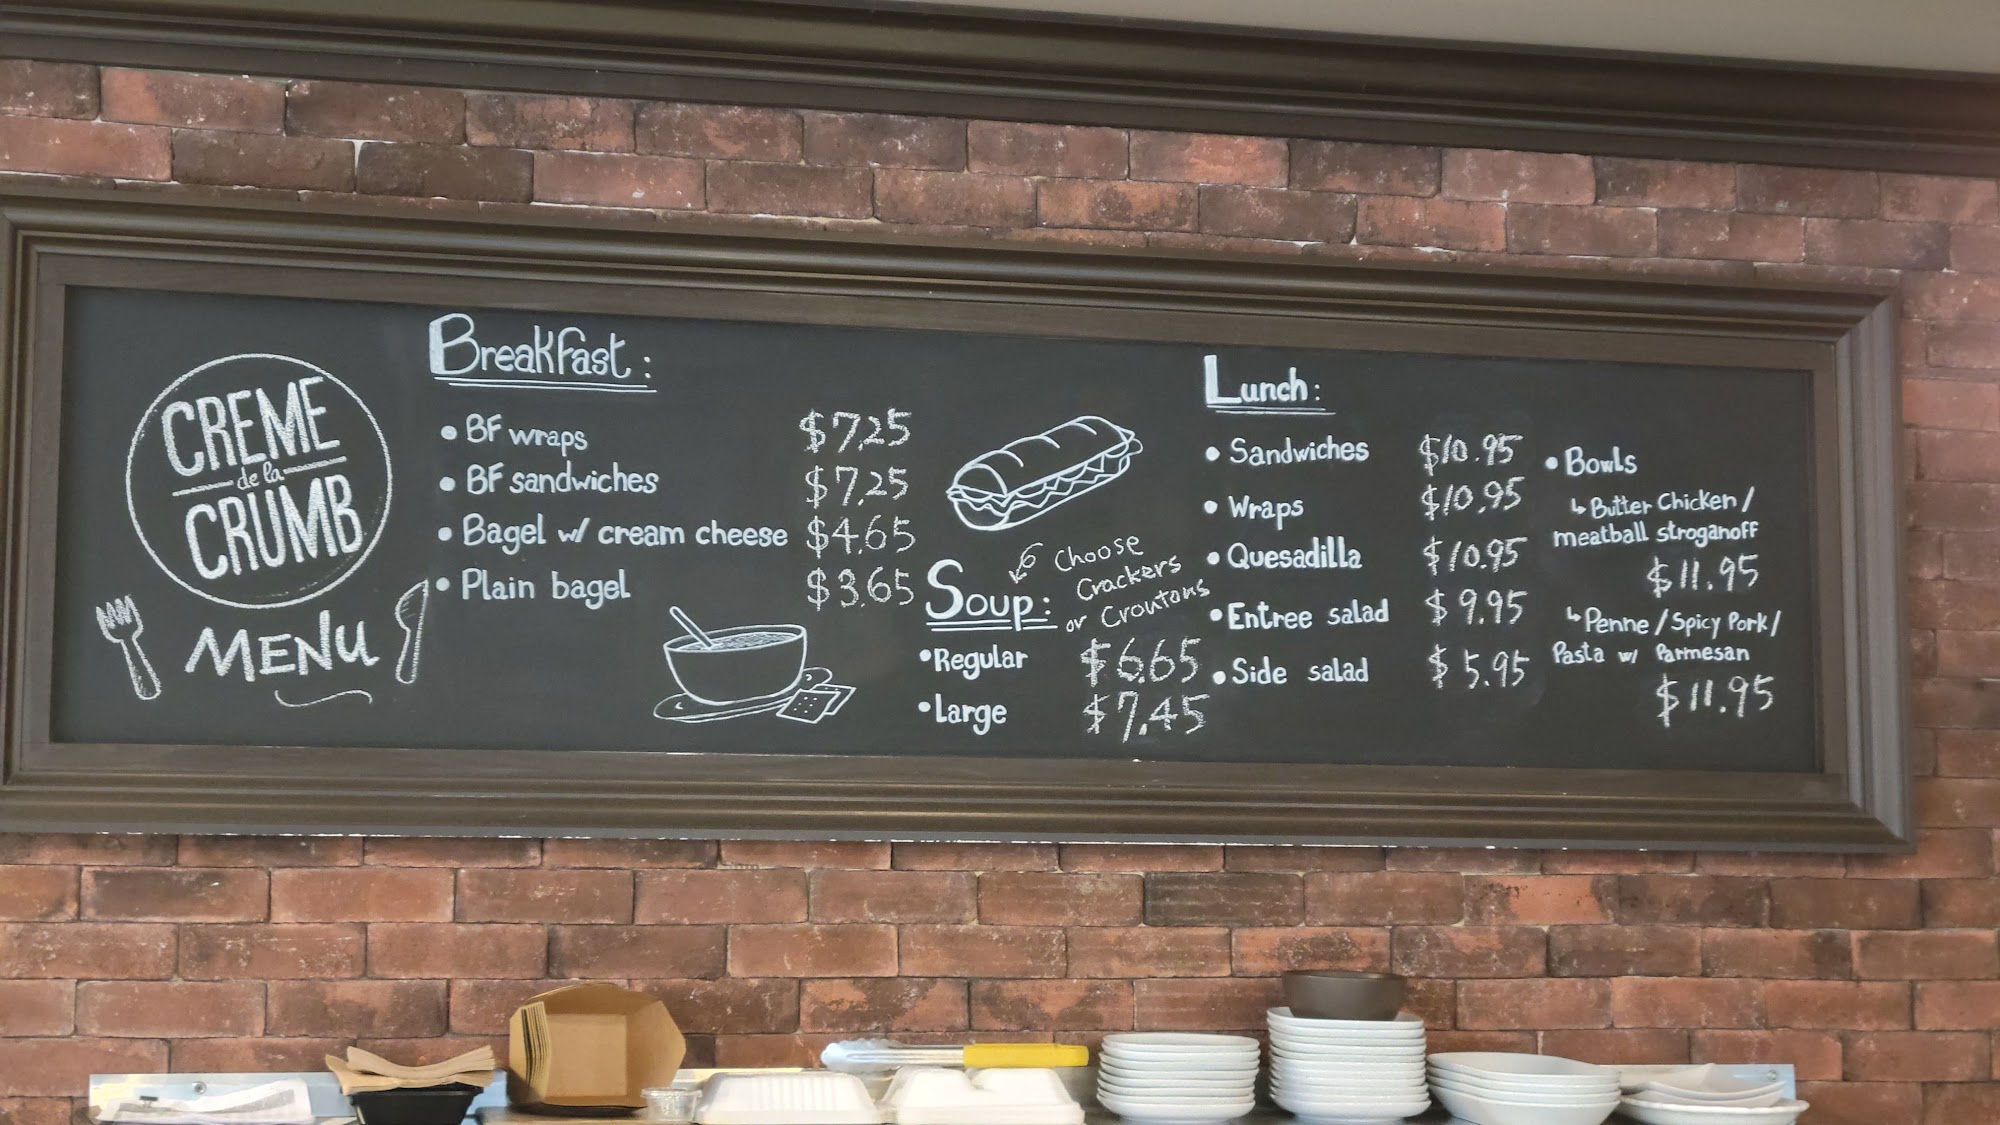 CREME
de la
CRUMB
MENU
Breakfast:
• BF wraps $7.25
• BF sandwiches $7.25
• Bagel w/ cream cheese $4.65
• Plain bagel $3.65
Soup:
Choose
Crackers
or Croutons
• Regular $6.65
• Large $7.45
Lunch:
• Sandwiches $10.95
• Wraps $10.95
• Quesadilla $10.95
• Entree salad $9.95
• Side salad $5.95
• Bowls
↳ Butter Chicken /
meatball stroganoff
$11.95
↳ Penne / Spicy Pork /
Pasta w/ Parmesan
$11.95